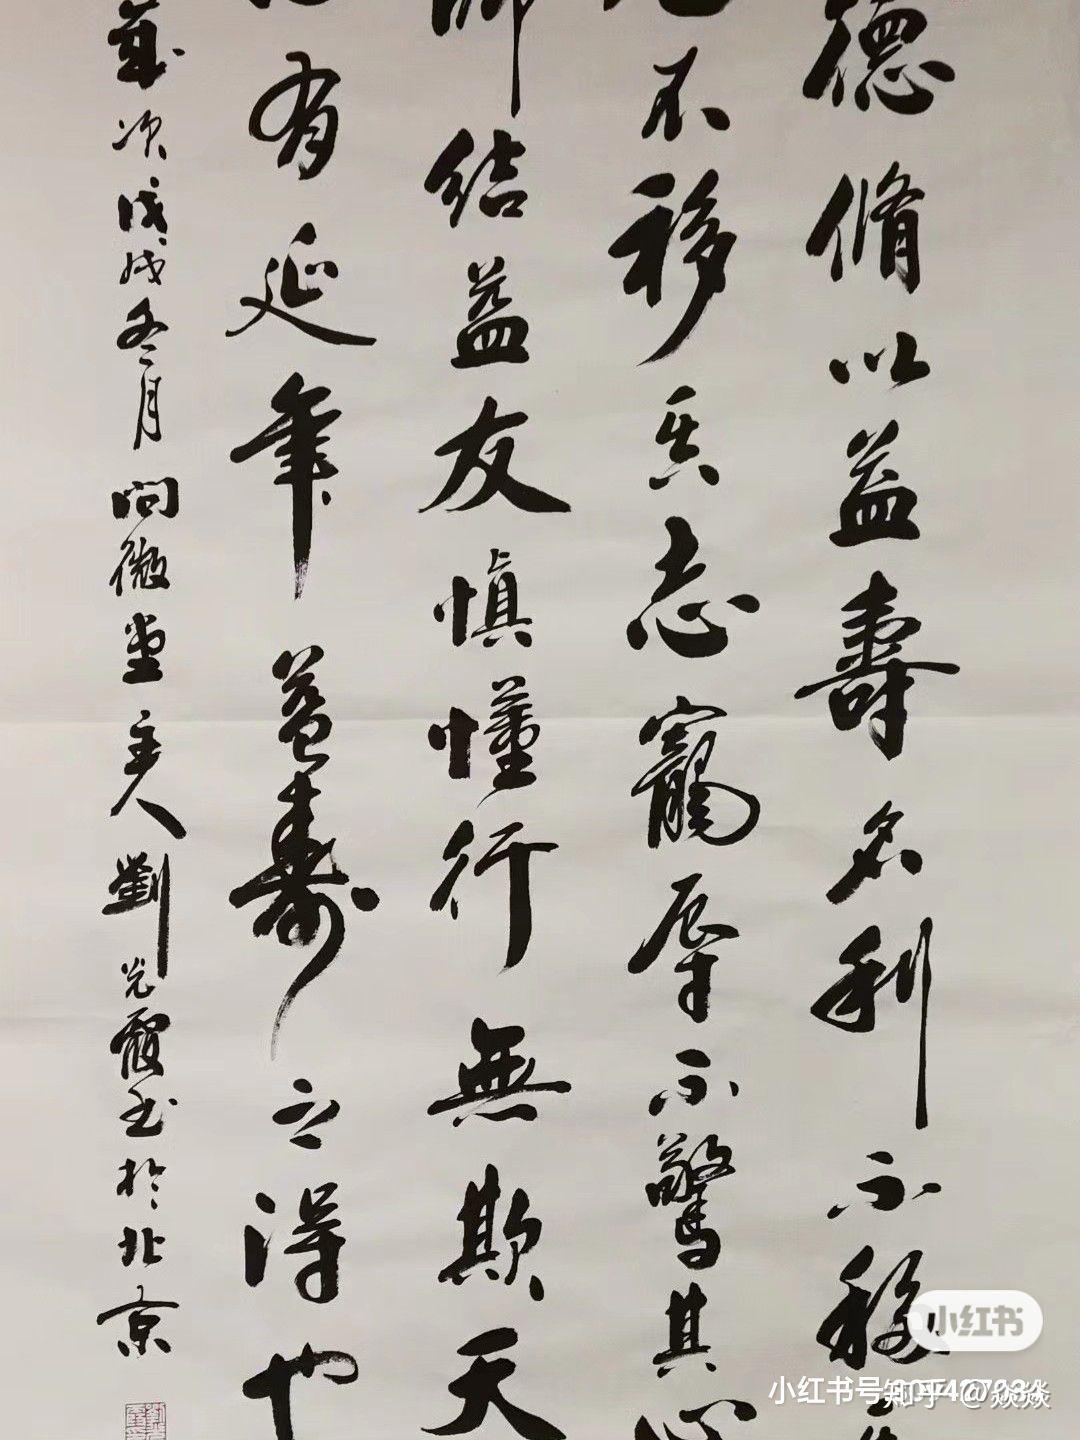 德脩以益壽名利不移
不移其志寵辱不驚其心
師結益友慎懂行無欺天
有延年益壽之得也
歲次戊戌冬月問微堂主人劉光霞书於北京
小红书
小红书号
知乎 @焱焱